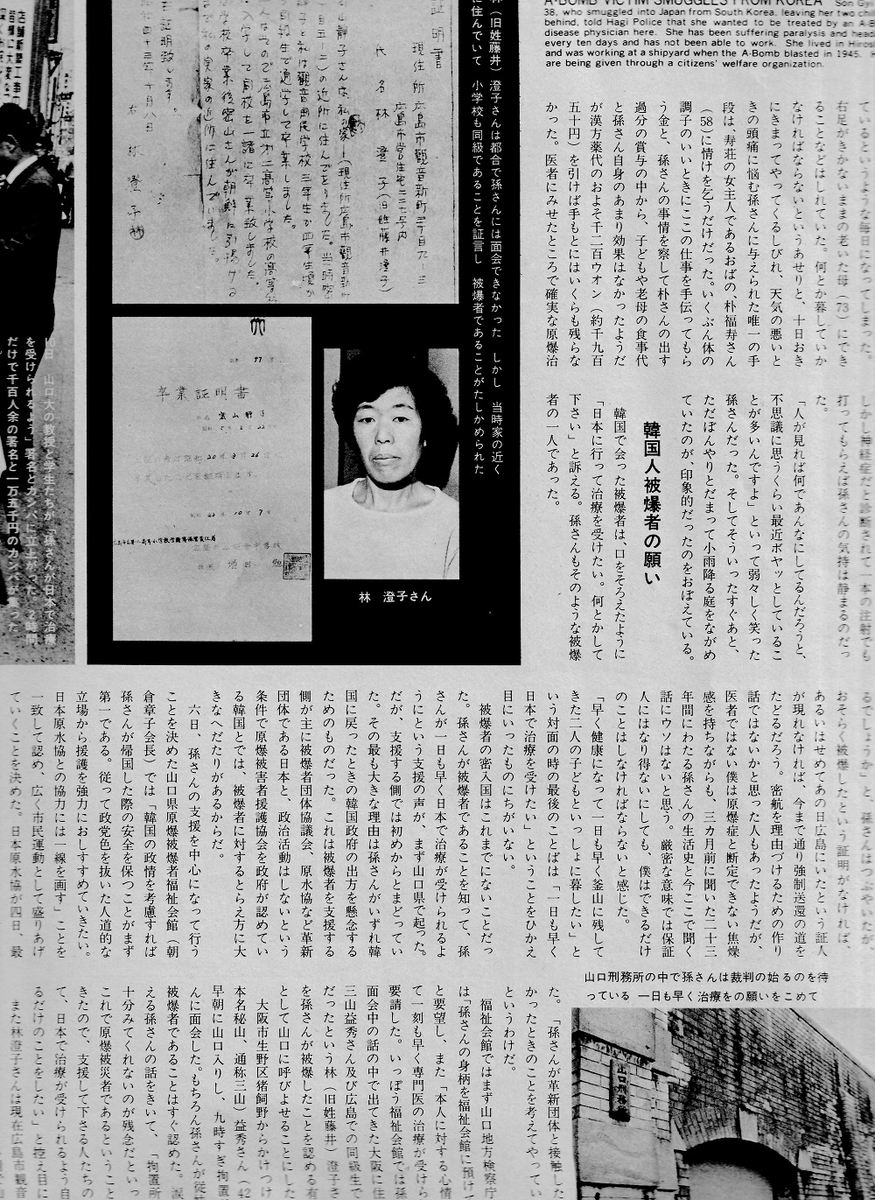 A-BOMB VICTIM SMUGGLES FROM KOREA
38, who smuggled into Japan from South Korea, leaving her two
behind, told Hagi Police that she wanted to be treated by an A-B
disease physician here. She has been suffering paralysis and
every ten days and has not been able to work. She lived in
and was working at a shipyard when the A-Bomb blasted in 1945.
are being given through a citizens' welfare organization.
ているというような毎日になってしまった。
右足がきかないままの老いた母（73）にでき
ることなどはしれていた。何とか暮していか
なければならないというあせりと、十日おき
にきまってやってくるしびれ、天気の悪いと
きの頭痛に悩む孫さんに与えられた唯一の手
段は、寿荘の女主人であるおばの、朴福寿さん
（58）に情けを乞うだけだった。いくぶん体の
調子のいいときにここの仕事を手伝ってもら
う金と、孫さんの事情を察して朴さんの出す
過分の賞与の中から、子どもや老母の食事代
と孫さん自身のあまり効果はなかったようだ
が漢方薬代のおよそ千二百ウオン（約千九百
五十円）を引けば手もとにはいくらも残らな
かった。医者にみせたところで確実な原爆治
しかし神経症だと診断されて一本の注射でも
打ってもらえば孫さんの気持は静まるのだっ
た。
「人が見れば何であんなにしてるんだろうと、
不思議に思うくらい最近ボヤッとしているこ
とが多いんですよ」といって弱々しく笑った
孫さんだった。そしてそういったすぐあと、
ただぼんやりとだまって小雨降る庭をながめ
ていたのが、印象的だったのをおぼえている。
韓国人被爆者の願い
韓国で会った被爆者は、口をそろえたように
「日本に行って治療を受けたい。何とかして
下さい」と訴える。孫さんもそのような被爆
者の一人であった。
林（旧姓藤井）澄子さんは都合で孫さんには面会できなかった　しかし　当時家の近く
に住んでいて　小学校も同級であることを証言し　被爆者であることがたしかめられた
証明書
現住所
代名林　澄子（旧姓藤井澄子）
卒業証明書
林　澄子さん
山口大の教授と学生たちが「孫さんが日本で治療
を受けられるよう」署名とカンパに立上った
だけで千百人余の署名と一万五千円のカンパ
るでしょうか」と、孫さんはつぶやいたが、
おそらく被爆したという証明がなければ、
あるいはせめてあの日広島にいたという証人
が現れなければ、今まで通り強制送還の道を
たどるだろう。密航を理由づけるための作り
話ではないかと思った人もあったようだが、
医者ではない僕は原爆症と断定できない焦燥
感を持ちながらも、三カ月前に聞いた二十三
年間にわたる孫さんの生活史と今ここで聞く
話にウソはないと思う。厳密な意味では保証
人にはなり得ないにしても、僕はできるだけ
のことはしなければならないと感じた。
「早く健康になって一日も早く釜山に残して
きた二人の子どもといっしょに暮したい」と
いう対面の時の最後のことばは「一日も早く
日本で治療を受けたい」ということをひかえ
目にいったものにちがいない。
被爆者の密入国はこれまでにないことだっ
た。孫さんが被爆者であることを知って、孫
さんが一日も早く日本で治療が受けられるよ
うにという支援の声が、まず山口県で起った。
だが、支援する側では初めからとまどってい
た。その最も大きな理由は孫さんがいずれ韓
国に戻ったときの韓国政府の出方を懸念する
ためのものだった。これは被爆者を支援する
側が主に被爆者団体協議会、原水協など革新
団体である日本と、政治活動はしないという
条件で原爆被害者援護協会を政府が認めてい
る韓国とでは、被爆者に対するとらえ方に大
きなへだたりがあるからだ。
六日、孫さんの支援を中心になって行う
ことを決めた山口県原爆被爆者福祉会館（朝
倉章子会長）では「韓国の政情を考慮すれば
孫さんが帰国した際の安全を保つことがまず
第一である。従って政党色を抜いた人道的な
立場から援護を強力におしすすめていきたい。
日本原水協との協力には一線を画す」ことを
一致して認め、広く市民運動として盛りあげ
ていくことを決めた。日本原水協が四日、最
山口刑務所の中で孫さんは裁判の始るのを待
っている　一日も早く治療をの願いをこめて
山口刑務所
た。「孫さんが革新団体と接触した
かったときのことを考えてやってい
というわけだ。
福祉会館ではまず山口地方検察庁
は「孫さんの身柄を福祉会館に預けて
と要望し、また「本人に対する心情
て一刻も早く専門医の治療が受けら
要請した。いっぽう福祉会館では孫
面会中の話の中で出てきた大阪に住
三山益秀さん及び広島での同級生で
だったという林（旧姓藤井）澄子さ
を孫さんが被爆したことを認める有
として山口に呼びよせることにした
大阪市生野区猪飼野からかけつけ
本名秘山、通称三山）益秀さん（42
早朝に山口入りし、九時すぎ拘置
んに面会した。もちろん孫さんが従
被爆者であることはすぐ認めた。涙
える孫さんの話をきいて、「拘置所
十分みてくれないのが残念だといっ
これで原爆被災者であるということ
きたので、支援して下さる人たちの
て、日本で治療が受けられるよう自
るだけのことをしたい」と控え目に
また林澄子さんは現在広島市観音